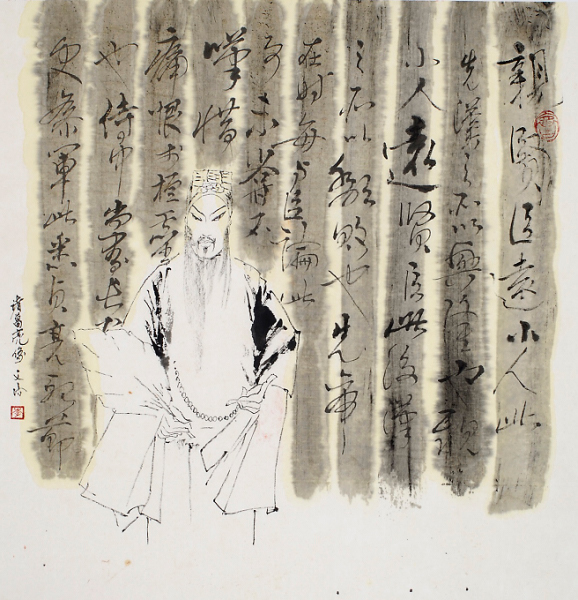 親賢臣遠小人此
先漢之所以興隆也親
小人遠賢臣此後漢
之所以也先帝
在時每与臣論此
事未嘗不
嘆惜
痛恨於桓靈
也侍中尚書長
史參軍此悉貞亮死節
諸葛亮像